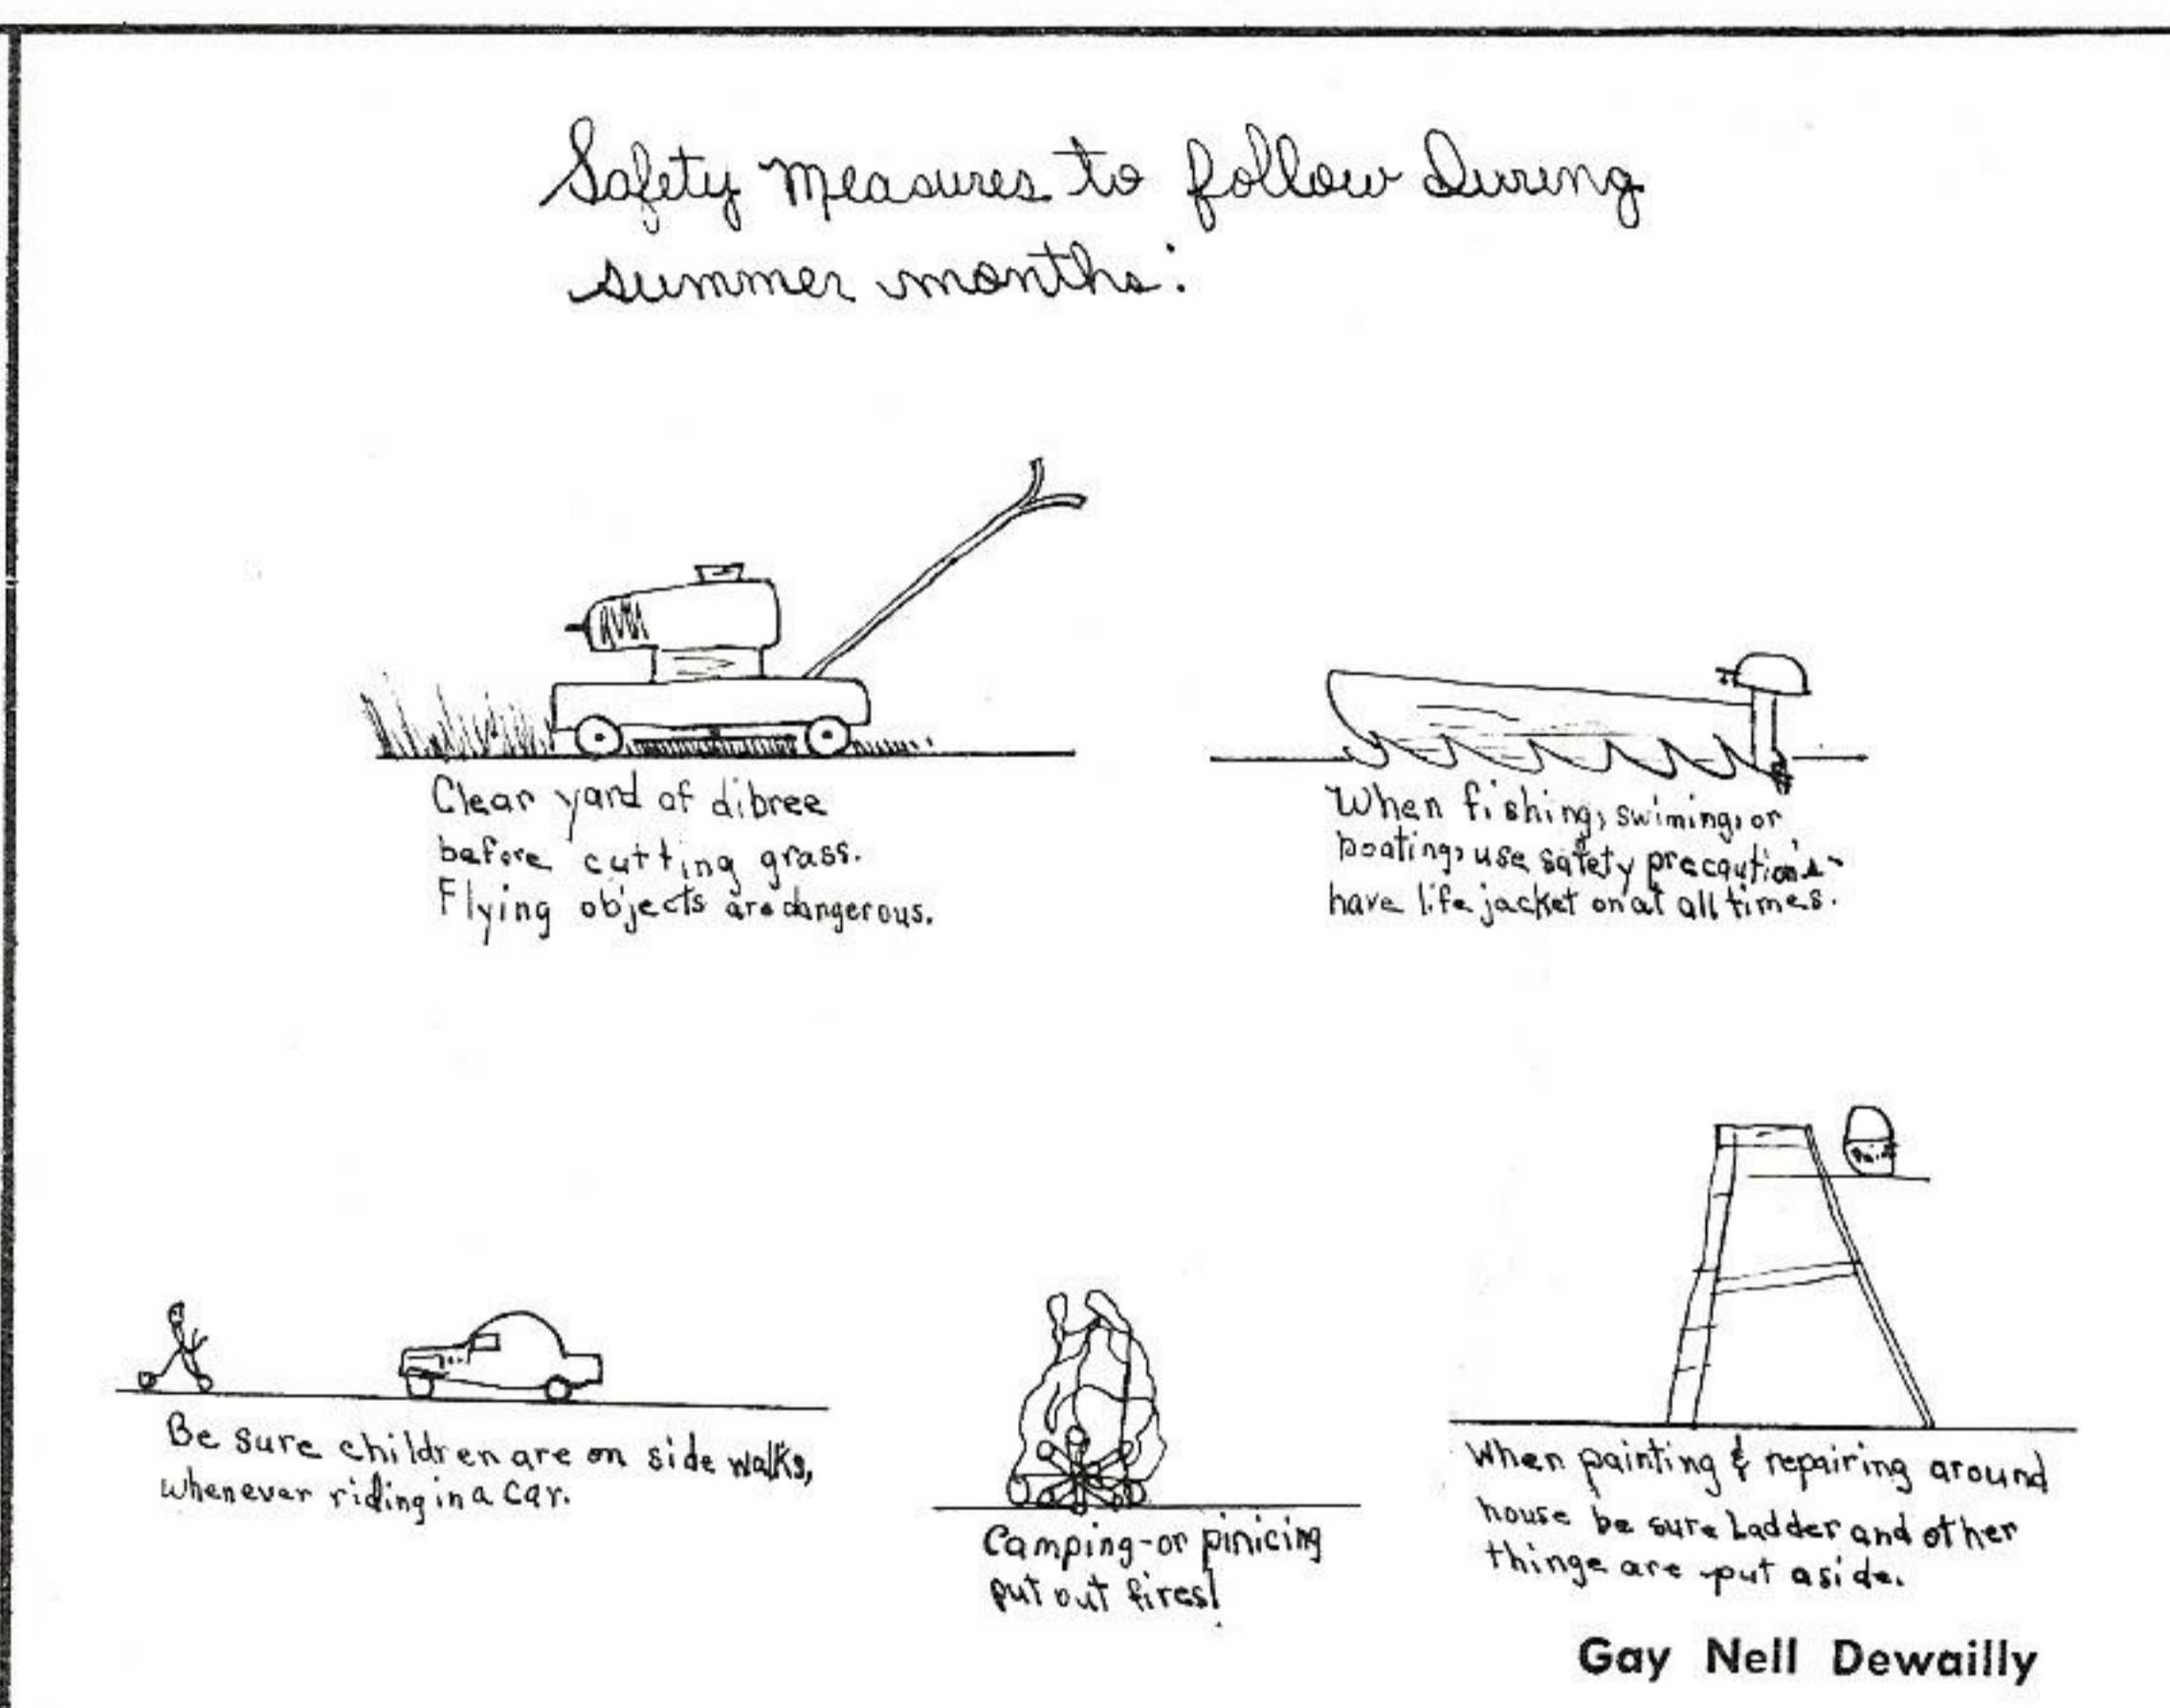 Safety Measures to follow During
summer months:
Clear yard of dibree
before cutting grass.
Flying objects are dangerous.
When fishing, swiming, or
boating, use safety precautions-
have life jacket on at all times.
Be sure children are on side walks,
whenever riding in a car.
Camping-or pinicing
put out fires!
Paint
When painting & repairing around
house be sure Ladder and other
thinge are put aside.
Gay Nell Dewailly